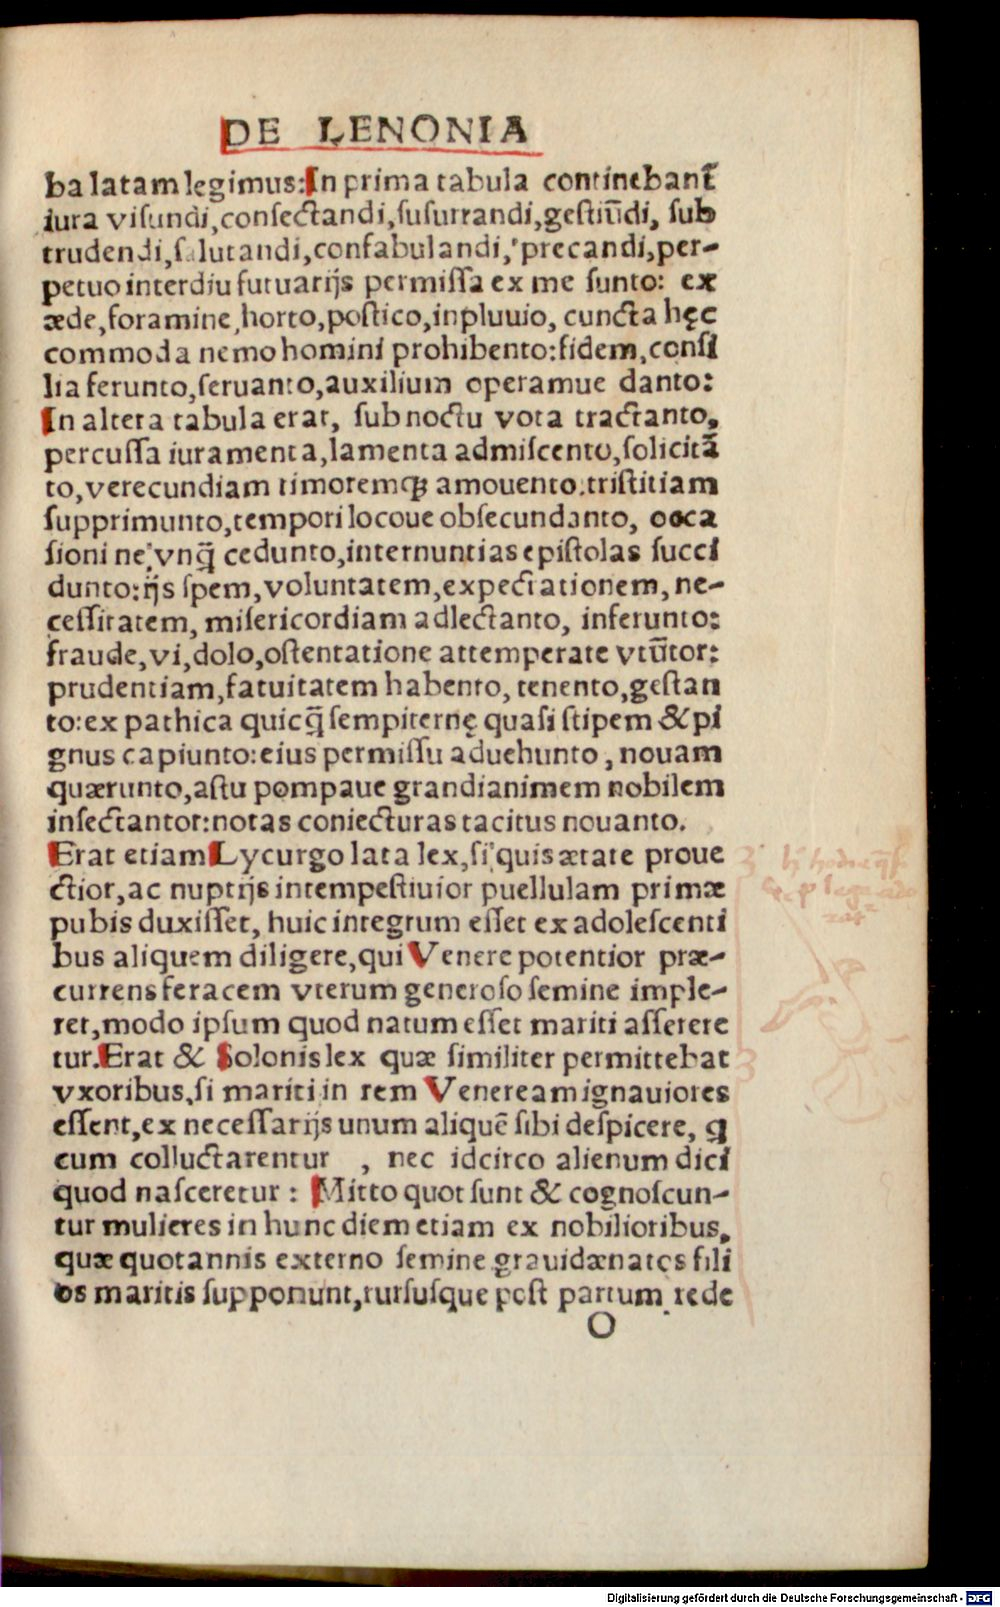 DE LENONIA
ba latam legimus: In prima tabula continebant̄
iura visundi,consectandi,susurrandi,gestiūdi, sub
trudendi,salutandi,confabulandi, precandi,per-
petuo interdiu futuarijs permissa ex me sunto: ex
æde,foramine,horto,postico,inpluuio, cuncta hęc
commoda nemo homini prohibento:fidem,consi
lia ferunto,seruanto,auxilium operamue danto:
In altera tabula erat, sub noctu vota tractanto,
percussa iuramenta,lamenta admiscento,solicitā
to,verecundiam timoremqꝫ amouento.tristitiam
supprimunto,tempori locoue obsecundanto, occa
sioni ne vnq̄ cedunto,internuntias epistolas succi
dunto:ijs spem,voluntatem,expectationem, ne-
cessitatem, misericordiam adlectanto, inferunto:
fraude,vi,dolo,ostentatione attemperate vtūtor:
prudentiam,fatuitatem habento, tenento,gestan
to:ex pathica quicq̄ sempiternę quasi stipem & pi
gnus capiunto:eius permissu aduehunto, nouam
quærunto,astu pompaue grandianimem nobilem
insectantor:notas coniecturas tacitus nouanto.
Erat etiam Lycurgo lata lex,si quis ætate proue
ctior,ac nuptijs intempestiuior puellulam primæ
pubis duxisset, huic integrum esset ex adolescenti
bus aliquem diligere,qui Venere potentior præ-
currens feracem vterum generoso semine imple-
ret,modo ipsum quod natum esset mariti assерere
tur.Erat & Solonis lex quæ similiter permittebat
vxoribus,si mariti in rem Veneream ignauiores
essent,ex necessarijs unum aliquē sibi despicere, ꝗ
cum colluctarentur , nec idcirco alienum dici
quod nasceretur : Mitto quot sunt & cognoscun-
tur mulieres in hunc diem etiam ex nobilioribus,
quæ quotannis externo semine grauidæ natos fili
os maritis supponunt,rursusque post partum rede
O
Digitalisierung gefördert durch die Deutsche Forschungsgemeinschaft - DFG